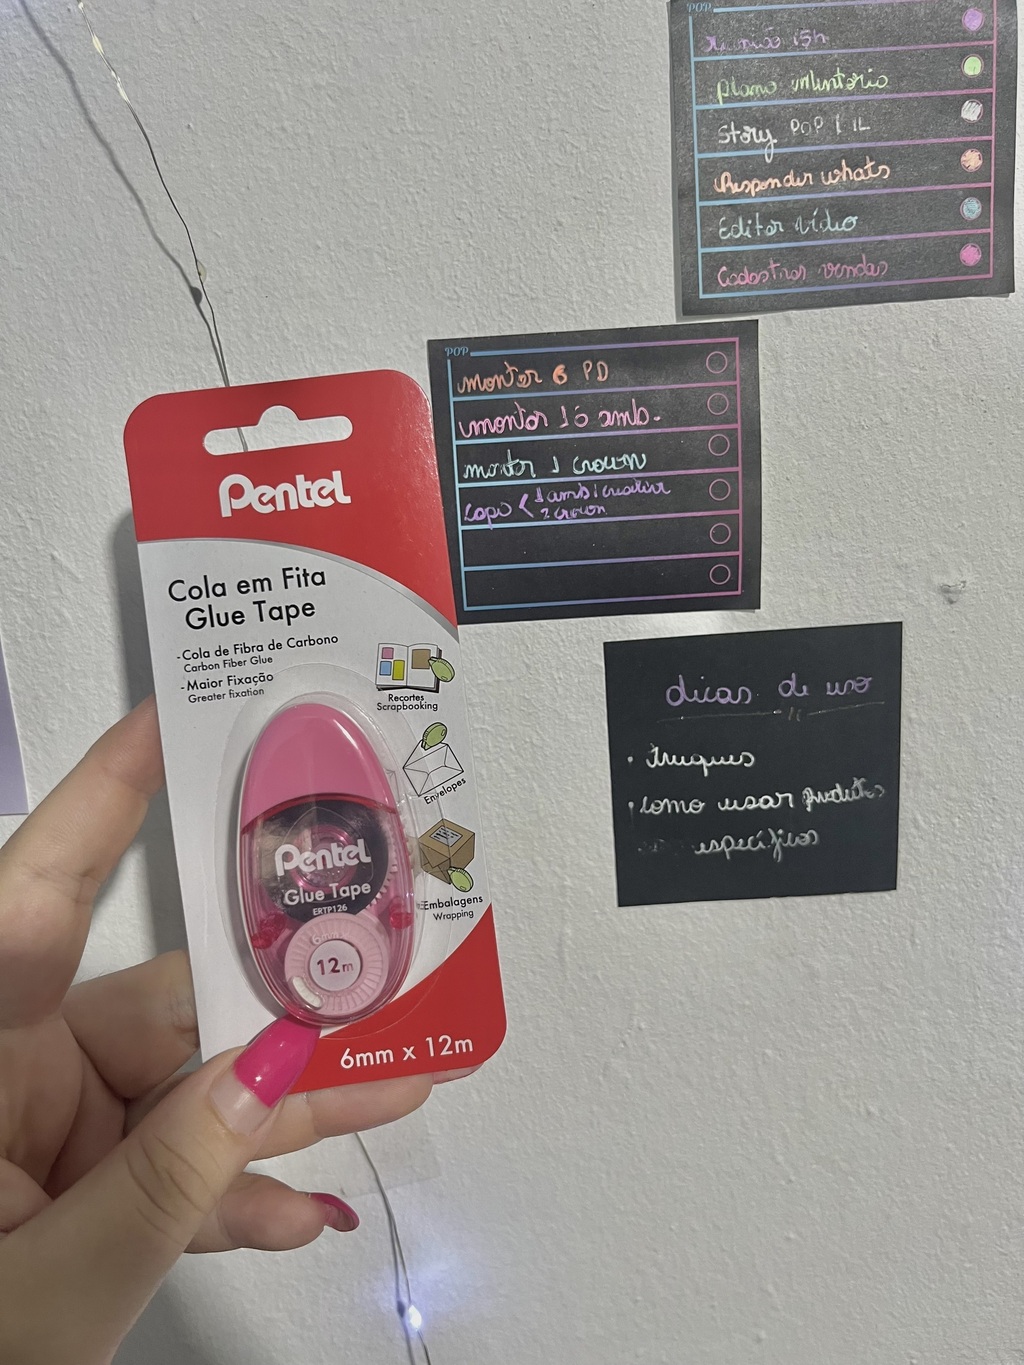 POP
Reunião 15h
plano voluntário
Story POP / IL
Responder whats
Editar vídeo
Cadastrar vendas
POP
montar 6 PD
montar 15 amb.
montar 1 crown
capo < 1 amb | creative
2 crown
dicas de uso
• Truques
• como usar produtos
específicos
Pentel
Cola em Fita
Glue Tape
-Cola de Fibra de Carbono
Carbon Fiber Glue
-Maior Fixação
Greater fixation
Recortes
Scrapbooking
Envelopes
Embalagens
Wrapping
Pentel
Glue Tape
ERTP126
6mm
12m
6mm x 12m